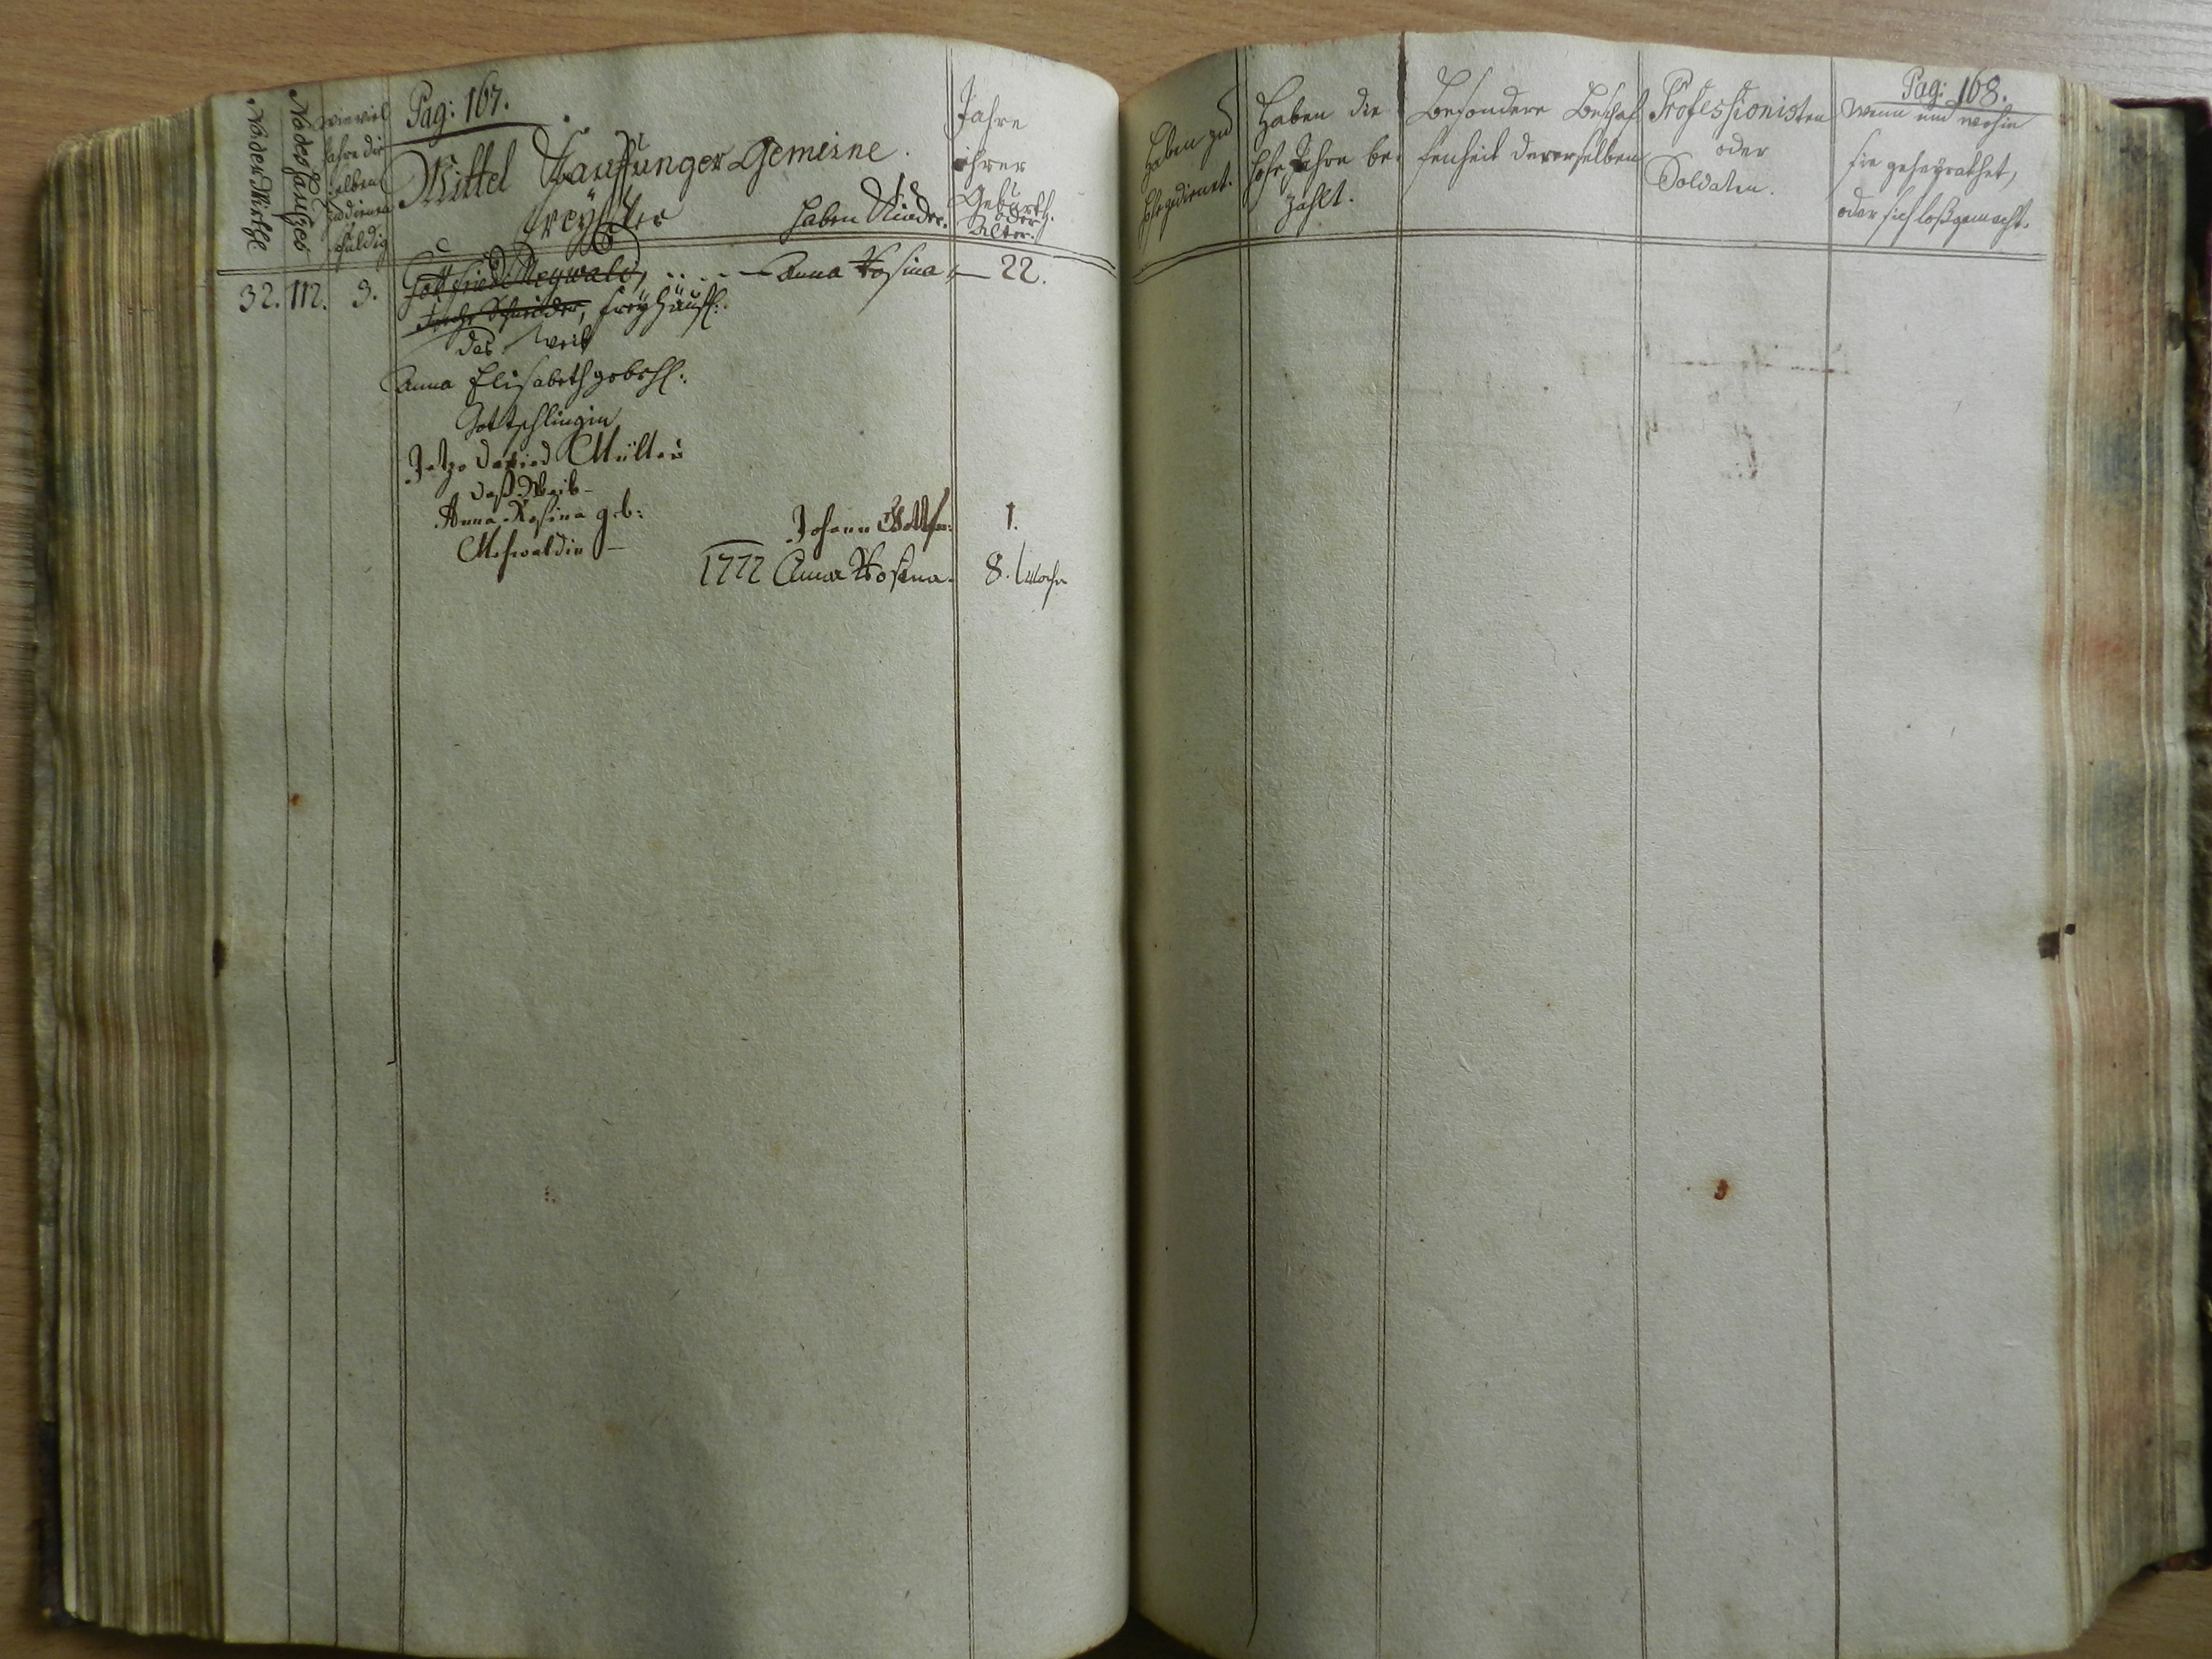 No der Wirthe
No des Hauses
wie viel
Jahre die
selben
zu dienen
schuldig
Pag: 167.
Mittel Kauffunger Gemeine.
Haben Kinder.
Jahre
ihrer
Geburth.
oder
Alter.
32. 112. 3. Gottfried Meywald, Anna Rosina 22.
Freyhäusl:
das Weib
Anna Elisabeth gebohl:
Gottschlingin
Jetzo David Müller
daß Weib
Anna Rosina geb:
Mehwaldin
Johann Gottfr: 1.
1772 Anna Rosina. 8. Woch
Haben zu
Hofe gedienet.
Haben die
Hofe Jahre be-
zahlt.
Besondere Beschaf
fenheit dererselben
Professionisten
oder
Soldaten.
Pag: 168.
Wenn und wohin
sie geheyrathet,
oder sich loßgemacht.